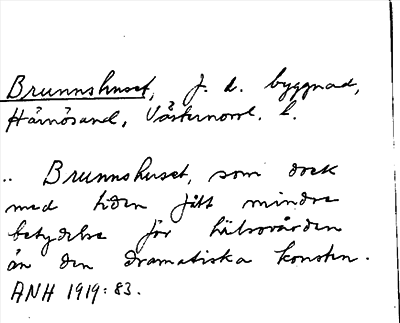 Brunnshuset, f. d. byggnad,
Härnösand, Västernorrl. l.
.. Brunnshuset, som dock
med tiden fått mindre
betydelse för hälsovården
än den dramatiska konsten.
ANH 1919:83.